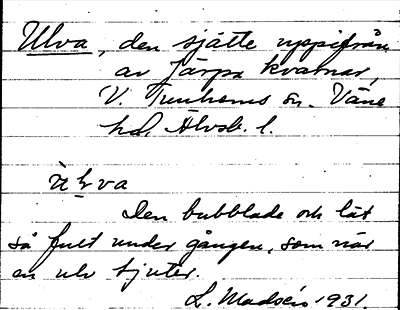 Ulva, den sjätte uppifrån
av Järpa kvarnar,
V. Tunhems sn. Väne
hd. Älvsb. l.
ùlva
Den bubblade och lät
så fult under gången, som när
en ulv tjuter.
L. Madsén 1931.